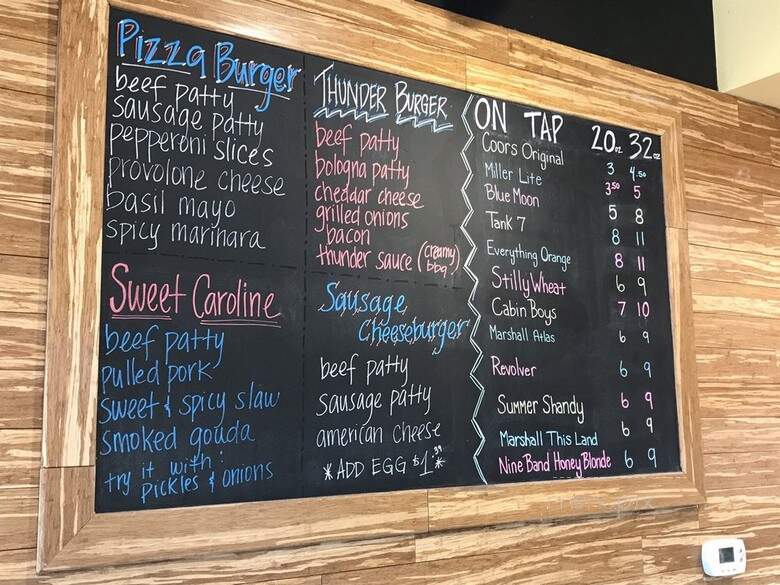 Pizza Burger
beef patty
sausage patty
pepperoni slices
provolone cheese
basil mayo
spicy marinara
Sweet Caroline
beef patty
pulled pork
sweet & spicy slaw
smoked gouda
try it with:
pickles & onions
THUNDER BURGER
beef patty
bologna patty
cheddar cheese
grilled onions
bacon
thunder sauce (creamy bbq)
Sausage
Cheeseburger
beef patty
sausage patty
american cheese
*ADD EGG $1.39*
ON TAP 20oz 32oz
Coors Original 3 4.50
Miller Lite 3.50 5
Blue Moon 5 8
Tank 7 8 11
Everything Orange 8 11
Stilly Wheat 6 9
Cabin Boys 7 10
Marshall Atlas 6 9
Revolver 6 9
Summer Shandy 6 9
Marshall This Land 6 9
Nine Band Honey Blonde 6 9